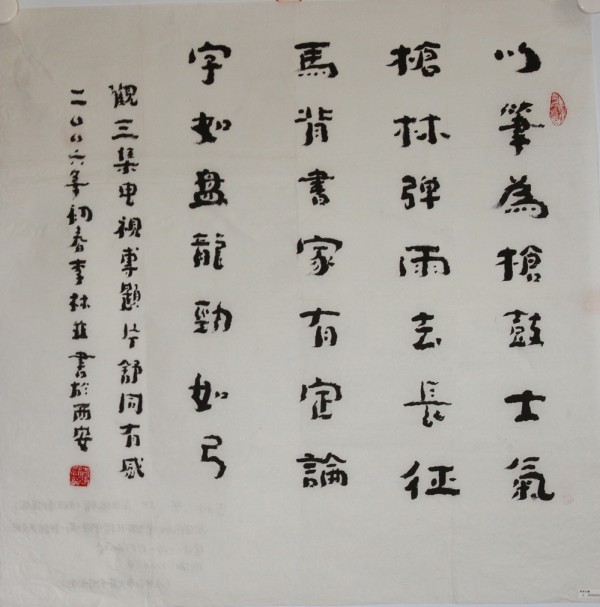 以筆為槍鼓士氣
槍林弹雨去長征
馬背書家有定論
字如盘龍勁如弓
觀三集电視專題片舒同有感
二〇〇六年初春李林 書於西安